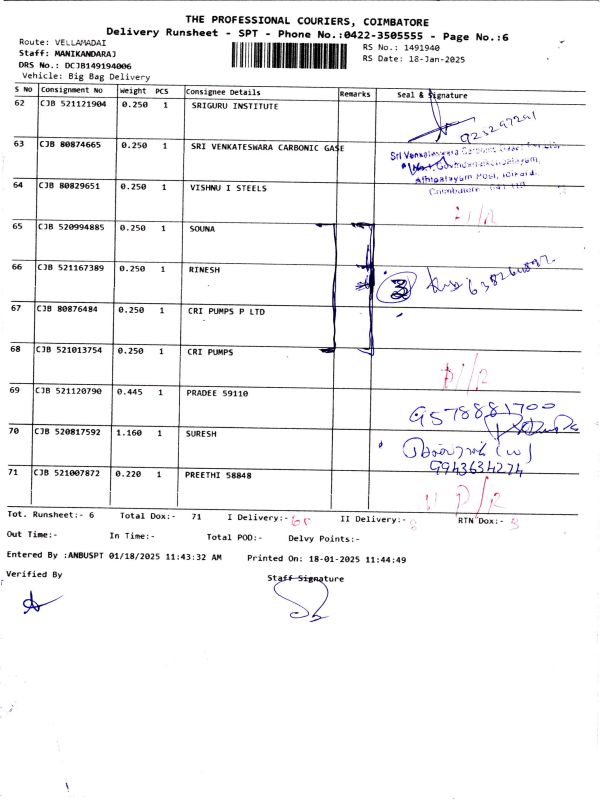 THE PROFESSIONAL COURIERS, COIMBATORE
Delivery Runsheet - SPT - Phone No.:0422-3505555 - Page No.:6
Route: VELLAMADAI
Staff: MANIKANDARAJ
DRS No.: DCJB149194006
Vehicle: Big Bag Delivery
RS No.: 1491940
RS Date: 18-Jan-2025
S No Consignment No Weight PCS Consignee Details Remarks Seal & Signature
62 CJB 521121904 0.250 1 SRIGURU INSTITUTE
63 CJB 80874665 0.250 1 SRI VENKATESWARA CARBONIC GASE
Sri Venkateswara
Athipalayam Post,
Coimbatore
64 CJB 80829651 0.250 1 VISHNU I STEELS
65 CJB 520994885 0.250 1 SOUNA
66 CJB 521167389 0.250 1 RINESH
67 CJB 80876484 0.250 1 CRI PUMPS P LTD
68 CJB 521013754 0.250 1 CRI PUMPS
69 CJB 521120790 0.445 1 PRADEE 59110
9578881700
70 CJB 520817592 1.160 1 SURESH
9943634274
71 CJB 521007872 0.220 1 PREETHI 58848
Tot. Runsheet:- 6 Total Dox:- 71 I Delivery:- 60 II Delivery:- 8 RTN Dox:- 3
Out Time:- In Time:- Total POD:- Delvy Points:-
Entered By :ANBUSPT 01/18/2025 11:43:32 AM Printed On: 18-01-2025 11:44:49
Verified By Staff Signature